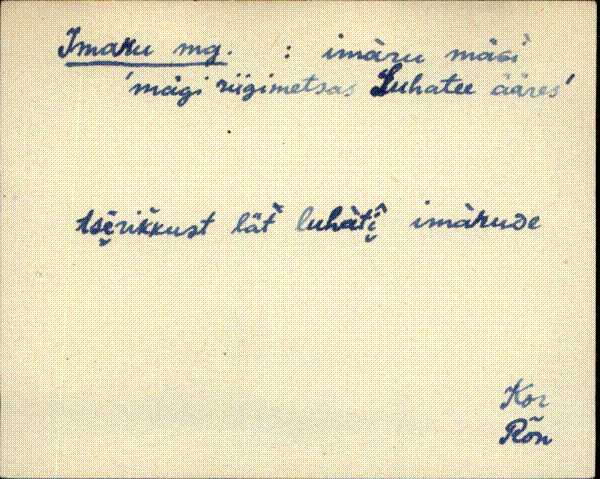 Imaru mg. : imàru mäɢi
'mägi riigimetsas Luhatee ääres'
tsęrikkust lät̀ luhàtị̂ imàruᴅe
Kor
Rõn